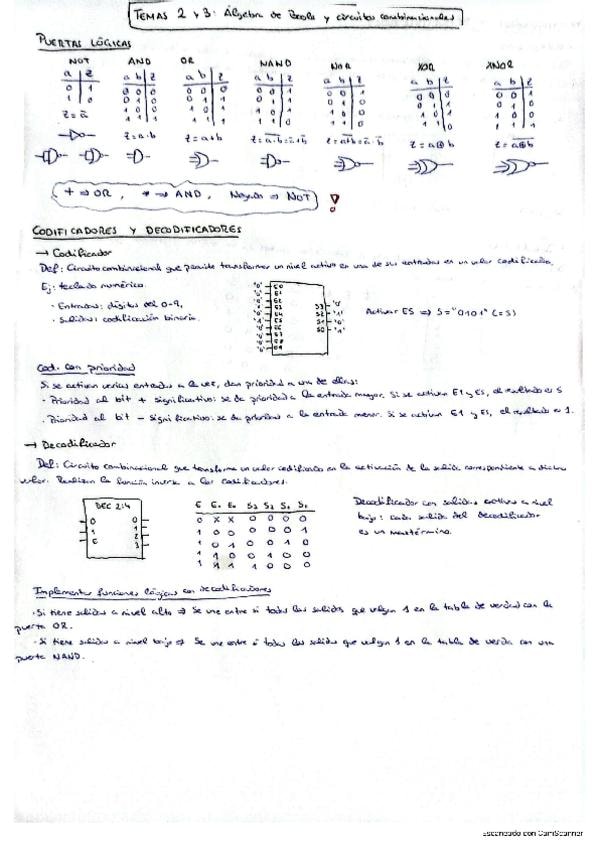 TEMAS 2 y 3: Álgebra de Boole y circuitos combinacionales
PUERTAS LÓGICAS
NOT AND OR NAND NOR XOR XNOR
a z a b z a b z a b z a b z a b z a b z
0 1 0 0 0 0 0 0 0 0 1 0 0 1 0 0 0 0 0 1
1 0 0 1 0 0 1 1 0 1 1 0 1 0 0 1 1 0 1 0
1 0 0 1 0 1 1 0 1 1 0 0 1 0 1 1 0 0
1 1 1 1 1 1 1 1 0 1 1 0 1 1 0 1 1 1
z = a̅ z = a·b z = a+b z = a⊕b
+ ⇒ OR, * ⇒ AND, Negación ⇒ NOT !
CODIFICADORES Y DECODIFICADORES
→ Codificador
Def: Circuito combinacional que permite transformar un nivel activo en una de sus entradas en un valor codificado.
Ej: teclado numérico.
· Entradas: dígitos del 0-9.
· Salidas: codificación binaria.
E0
E1
E2
E3
E4
E5
E6
E7
E8
E9
S3 "0"
S2 "1"
S1 "0"
S0 "1"
Activar E5 ⇒ S="0101" (=5)
Cod. con prioridad
Si se activan varias entradas a la vez, dan prioridad a una de ellas:
· Prioridad al bit + significativo: se da prioridad a la entrada mayor. Si se activan E1 y E5, el resultado es 5
· Prioridad al bit - significativo: se da prioridad a la entrada menor. Si se activan E1 y E5, el resultado es 1.
→ Decodificador
Def: Circuito combinacional que transforma un valor codificado en la activación de la salida correspondiente a dicho
valor. Realizan la función inversa a los codificadores.
DEC 2:4
0 0
1 1
E 2
3
E E₁ E₀ S₃ S₂ S₁ S₀
0 X X 0 0 0 0
1 0 0 0 0 0 1
1 0 1 0 0 1 0
1 1 0 0 1 0 0
1 1 1 1 0 0 0
Decodificador con salidas activas a nivel
bajo: cada salida del decodificador
es un maxtérmino.
Implementar funciones lógicas con decodificadores
· Si tiene salidas a nivel alto ⇒ Se une entre sí todas las salidas que valgan 1 en la tabla de verdad con la
puerta OR.
· Si tiene salidas a nivel bajo ⇒ Se une entre sí todas las salidas que valgan 1 en la tabla de verdad con una
puerta NAND.
Escaneado con CamScanner